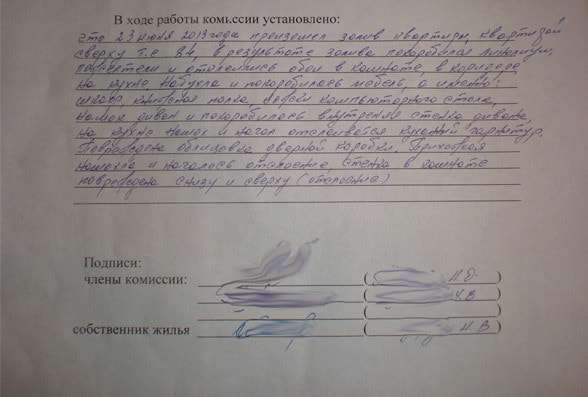 В ходе работы комиссии установлено:
что 23 июня 2013 года произошел залив квартиры, квартирой
сверху т.е. 84 в результате залива покоробился линолиум,
и отклеились обои в комнате, в коридоре
на кухне. Набухла и покоробилась мебель, а именно:
шкаф, книжная полка, компьютерного стола,
намок диван и покоробилась внутренняя стенка дивана,
на кухне намок и начал отслаиваться кухонный гарнитур.
Повреждена облицовка дверной коробки. Прихожая
намокла и началось отслоение, стенка в комнате
повреждена снизу и сверху (отслоение)
Подписи:
члены комиссии:
( )
( )
( )
собственник жилья ( )